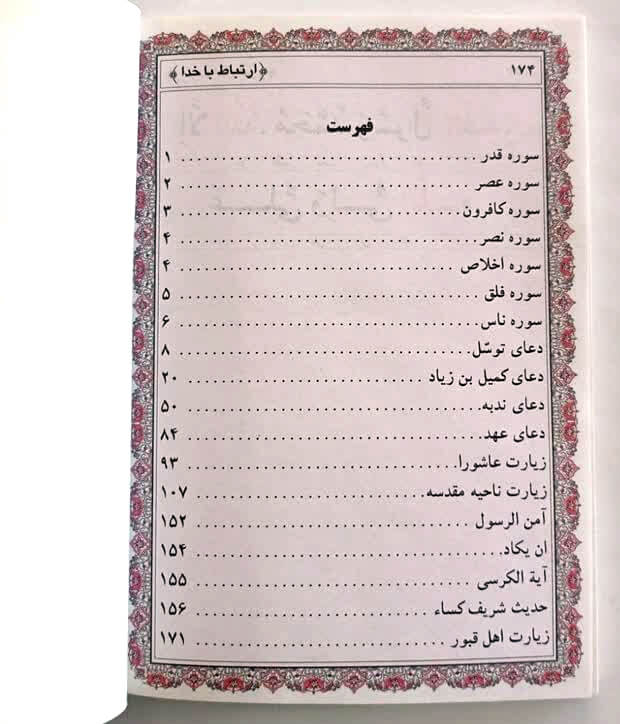 ۱۷۴ ﴿ارتباط با خدا﴾
فهرست
سوره قدر ............................ ۱
سوره عصر ............................ ۲
سوره کافرون ............................ ۳
سوره نصر ............................ ۴
سوره اخلاص ............................ ۴
سوره فلق ............................ ۵
سوره ناس ............................ ۶
دعای توسّل ............................ ۸
دعای کمیل بن زیاد ............................ ۲۰
دعای ندبه ............................ ۵۰
دعای عهد ............................ ۸۴
زیارت عاشورا ............................ ۹۳
زیارت ناحیه مقدسه ............................ ۱۰۷
آمن الرسول ............................ ۱۵۲
ان یکاد ............................ ۱۵۴
آیة الکرسی ............................ ۱۵۵
حدیث شریف کساء ............................ ۱۵۶
زیارت اهل قبور ............................ ۱۷۱